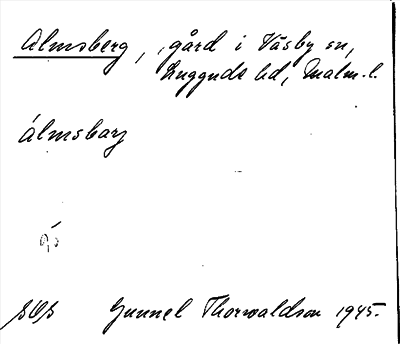 Almsberg, gård i Väsby sn,
Luggude hd, Malm. l.
álmsbarj
Gunnel Thorwaldson 1945.